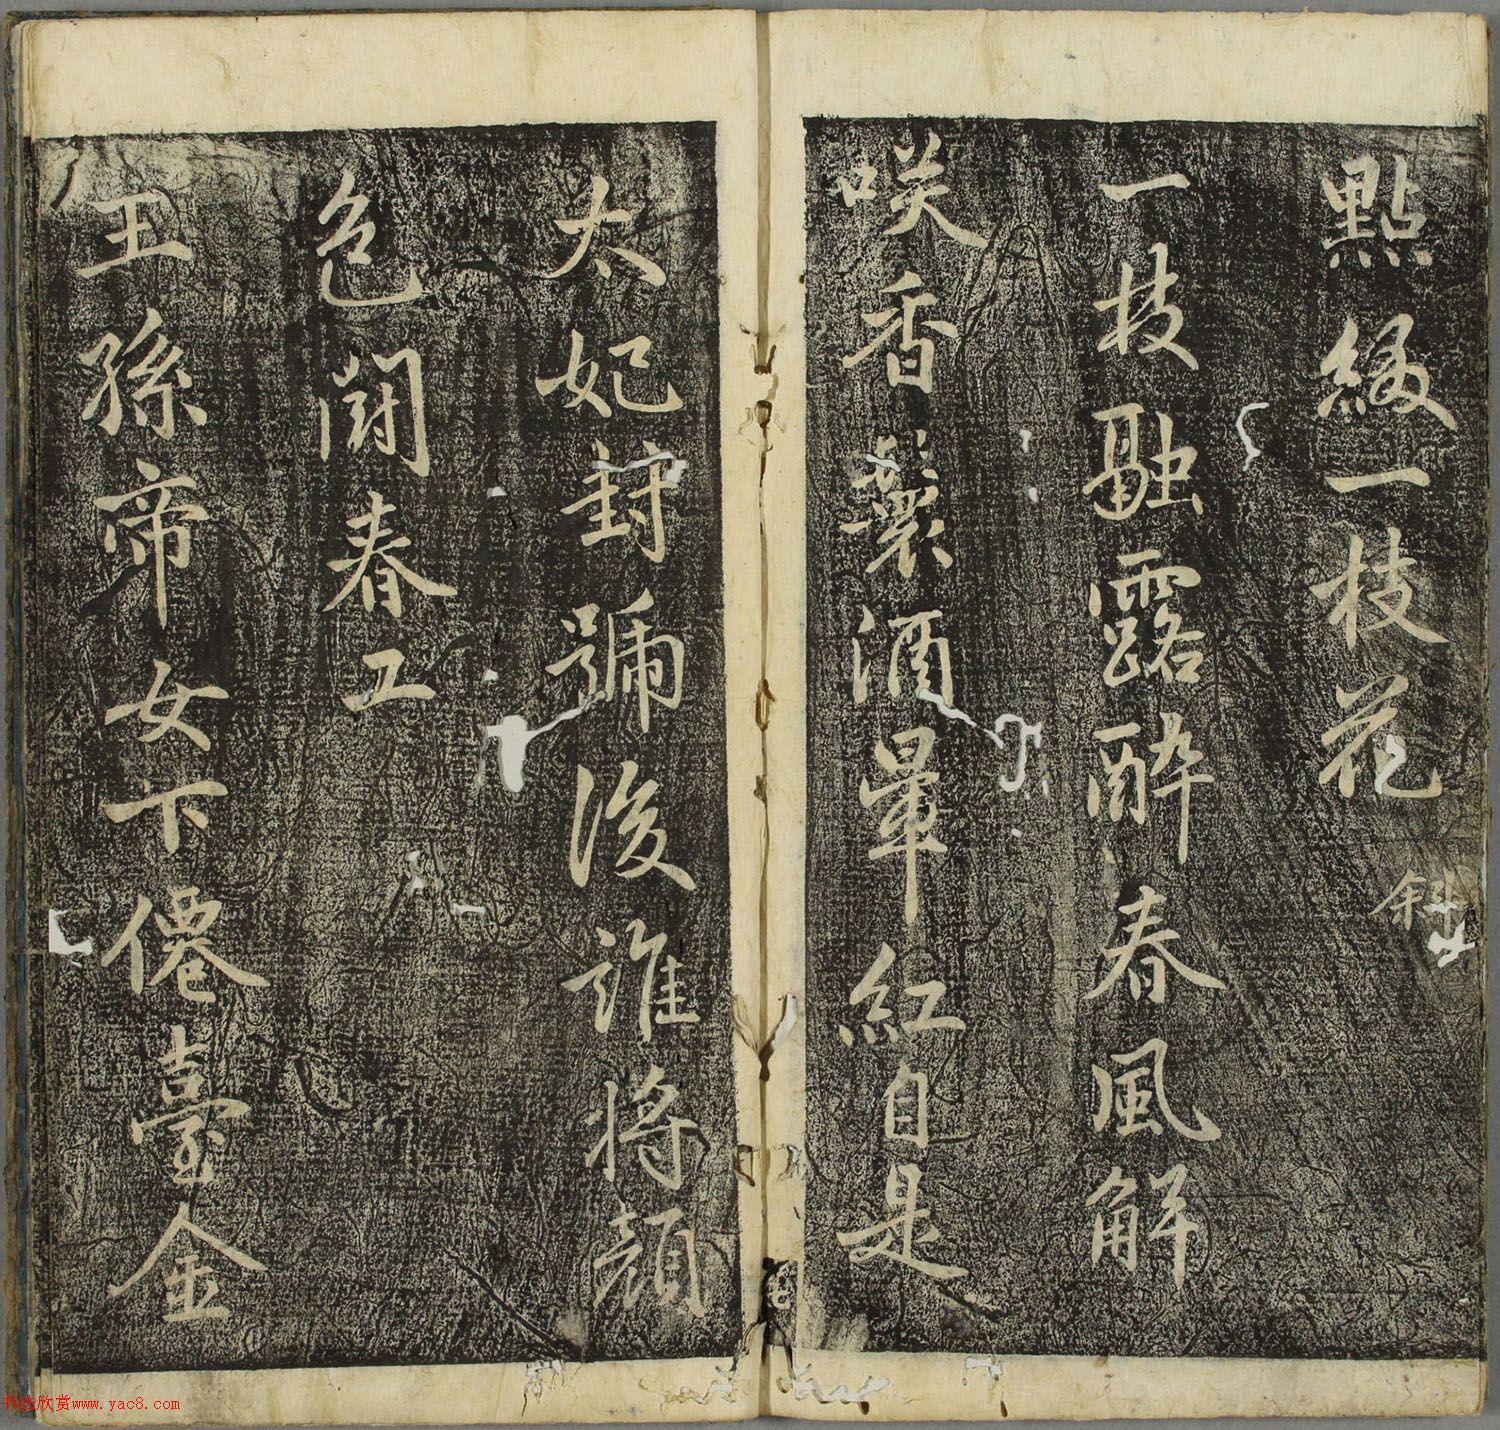 點綴一枝花
斜
一枝融露醉春風解
咲香囊酒暈紅自是
太妃封號後誰將顏
色鬪春工
王孫帝女下僊臺金
书法欣赏www.yac8.com